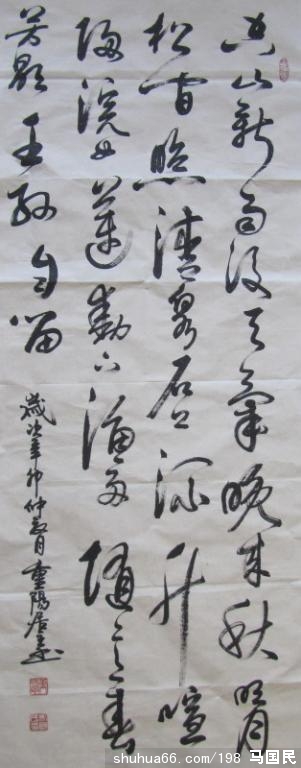 空山新雨後天氣晚來秋明月
松間照清泉石上流竹喧
歸浣女蓮動下漁舟隨意春
芳歇王孫自留
歲次辛卯仲月重陽居
shuhua66.com/198 马国民